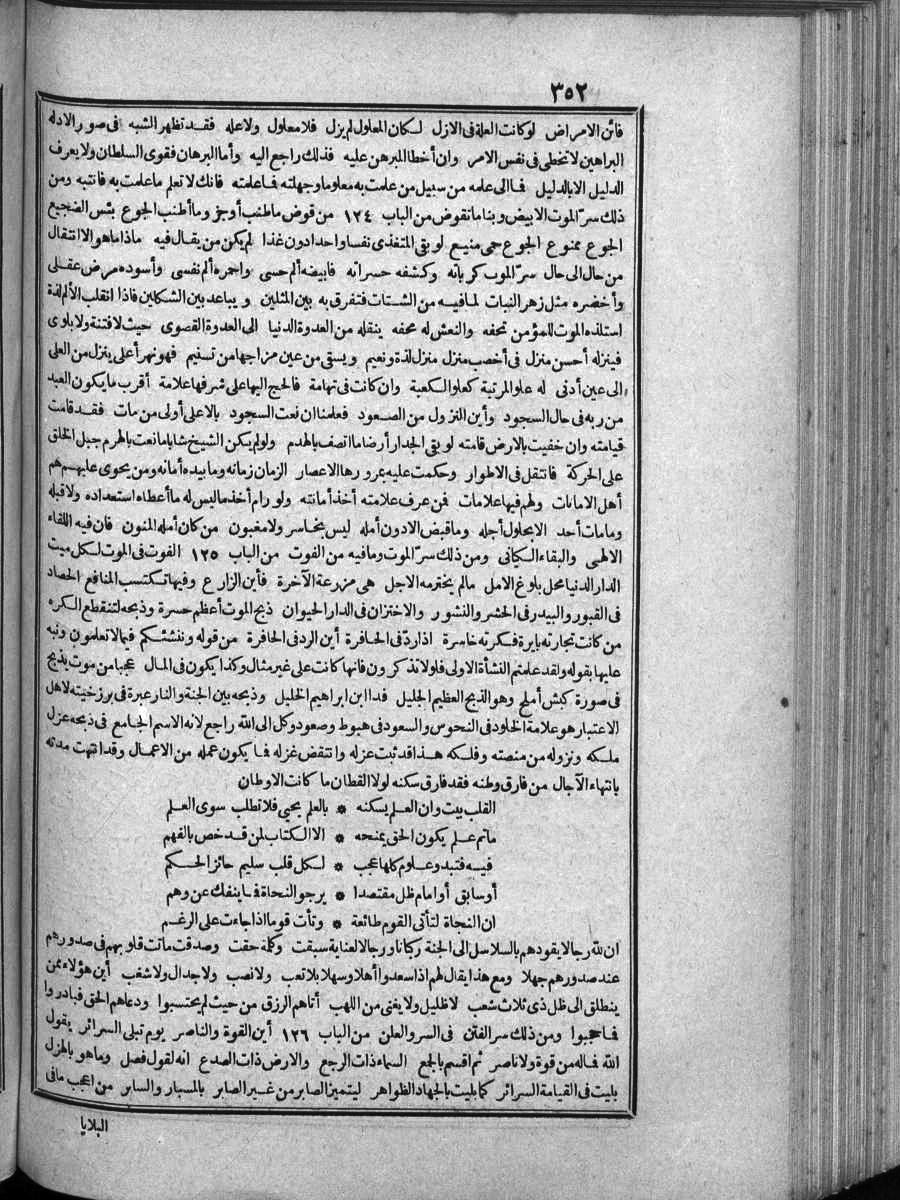 ٣٥٢
فأين الامراض لو كانت العلة فى الازل لكان المعلول لم يزل فلا معلول ولا عله فقد تظهر الشبه فى صور الادله
البراهين لا تخطى فى نفس الامر وان أخطأ المبرهن عليه فذلك راجع اليه وأما البرهان فقوى السلطان ولا يعرف
الدليل الا بالدليل فما الى علمه من سبيل من علمت به معلوما وجهلته فما علمته فانك لا تعلم ما علمت به فانتبه ومن
ذلك سر الموت الابيض وبنا ما تقوض من الباب ١٢٤ من قوض ما طنب أوجز وما أطنب الجوع بئس الضجيع
الجوع ممنوع الجوع حمى منيع لو بقى المتغذى نفسا واحدا دون غذا لم يكن من يقال فيه ماذا ما هو الا انتقال
من حال الى حال سر الموت كرباته وكشفه حسراته فابيضه ألم حسى واحمره ألم نفسى وأسوده مرض عقلى
وأخضره مثل زهر النبات لما فيه من الشتات فتفرق به بين المثلين ويباعد بين الشكلين فاذا انقلب الألم لذة
استلذه الموت للمؤمن تحفه والنعش له محفه ينقله من العدوة الدنيا الى العدوة القصوى حيث لا فتنة ولا بلوى
فينزله أحسن منزل فى أخصب منزل منزل لذة ونعيم ويسقى من عين مزاجها من تسنيم فهو نهر أعلى ينزل من العلى
الى عين أدنى له علو المرتبة كعلو الكعبة وان كانت فى تهامة فالحج اليها على شرفها علامة أقرب ما يكون العبد
من ربه فى حال السجود وأين النزول من الصعود فعلمنا ان نعت السجود بالاعلى أولى من مات فقد قامت
قيامته وان خفيت بالارض قامته لو بقى الجدار أرضا ما اتصف بالهدم ولو لم يكن الشيخ شابا ما نعت بالهرم جبل الخلق
على الحركة فانتقل فى الاطوار وحكمت عليه بمرورها الاعصار الزمان زمانه وما بيده أمانه ومن يحوى عليهم هم
أهل الامانات ولهم فيها علامات فمن عرف علامته أخذ أمانته ولو رام أخذ ما ليس له ما أعطاه استعداده ولا قبله
وما مات أحد الا بحلول أجله وما قبض الا دون أمله ليس بخاسر ولا مغبون من كان أمله المنون فان فيه اللقاء
الالهى والبقاء الكيانى ومن ذلك سر الموت وما فيه من الفوت من الباب ١٢٥ الفوت فى الموت لكل ميت
الدار الدنيا محل بلوغ الامل مالم يخترمه الاجل هى مزرعة الآخرة فأين الزارع وفيها تكتسب المنافع الحصاد
فى القبور والبيدر فى الحشر والنشور والاختزان فى الدار الحيوان ذبح الموت أعظم حسرة وذبحه لتنقطع الكره
من كانت تجارته بايرة فكرته خاسرة اذا ردّ فى الحافرة أين الرد فى الحافرة من قوله وننشئكم فيما لا تعلمون ونبه
عليها بقوله ولقد علمتم النشأة الاولى فلولا تذكرون فانها كانت على غير مثال وكذا يكون فى المال عجبا من موت يذبح
فى صورة كبش أملح وهو الذبح العظيم الجليل فدا ابن ابراهيم الخليل وذبحه بين الجنة والنار عبرة فى برزخيته لاهل
الاعتبار هو علامة الخلود فى النحوس والسعود فى هبوط وصعود وكل الى الله راجع لانه الاسم الجامع فى ذبحه عزل
ملكه ونزوله من منصته وفلكه هذا قد ثبت عزله وانتقض غزله فما يكون عمله من الاعمال وقد انتهت مدته
بانتهاء الآجال من فارق وطنه فقد فارق سكنه لولا القطان ما كانت الاوطان
القلب بيت وان العلم يسكنه * بالعلم يحيى فلا تطلب سوى العلم
ماثم علم يكون الحق يمنحه * الا الكتاب لمن قد خص بالفهم
فيه فتبدو علوم كلها عجب * لكل قلب سليم حائز الحكم
أو سابق أو امام ظل مقتصدا * يرجو النجاة فما ينفك عن وهم
ان النجاة لتأتى القوم طائعة * وتأت قوما اذا جاءت على الرغم
ان لله رجالا يقودهم بالسلاسل الى الجنة ركبانا ورجالا لعناية سبقت وكلمة حقت وصدقت ماتت قلوبهم فى صدورهم
عند صدورهم جهلا ومع هذا يقال لهم اذا سعدوا أهلا وسهلا بلا تعب ولا نصب ولا جدال ولا شغب أين هؤلاء ممن
ينطلق الى ظل ذى ثلاث شعب لا ظليل ولا يغنى من اللهب أتاهم الرزق من حيث لم يحتسبوا ودعاهم الحق فبادروا
فما حجبوا ومن ذلك سر الفتن فى السر والعلن من الباب ١٢٦ أين القوة والناصر يوم تبلى السرائر يقول
الله فماله من قوة ولا ناصر ثم اقسم بالجمع السماء ذات الرجع والارض ذات الصدع انه لقول فصل وما هو بالهزل
بليت فى القيامة السرائر كما بليت بالجهاد الظواهر ليتميز الصابر من غير الصابر بالمسبار والسابر من اعجب ما فى
البلايا